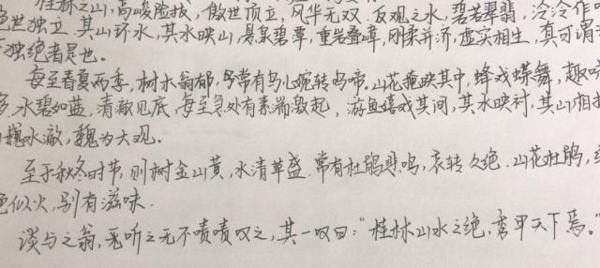 桂林之山，高峻险拔，傲世顶立，风华无双．反观之水，碧若翠翡，泠泠作
绝世独立．其山环水，其水映山，悬泉碧草，重岩叠嶂，刚柔并济，虚实相生，真可谓
独绝者是也．
每至春夏两季，树木蓊郁，常有鸟心婉转鸟啼．山花掩映其中，蜂戏蝶舞，趣
多．水碧如蓝，清澈见底，每至急处有素湍激起，游鱼嬉戏其间，其水映衬，其山相
巍水澈，巍为大观．
至于秋冬时节，则树金山黄，水清草盛．常有杜鹃悲鸣，哀转久绝．山花杜鹃，
色似火，别有滋味．
谈与之翁，翁听之无不啧啧叹之，其一叹曰："桂林山水之绝，当甲天下焉．"